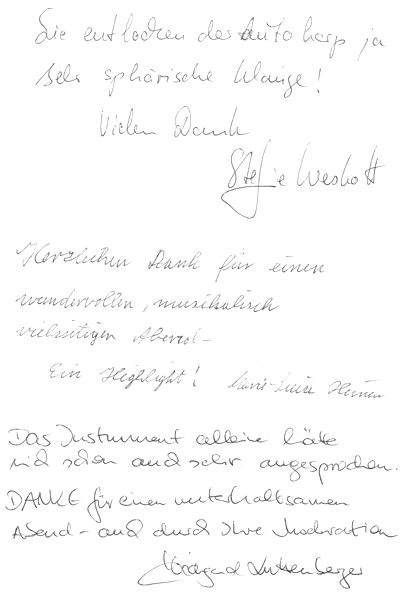 Sie entlocken der Autoharp ja
sehr sphärische Klänge!
Vielen Dank
Herzlichen Dank für einen
wundervollen, musikalisch
vielseitigen Abend –
Ein Highlight!
Das Instrument alleine hätte
mich schon auch sehr angesprochen.
DANKE für einen unterhaltsamen
Abend – auch durch Ihre Moderation